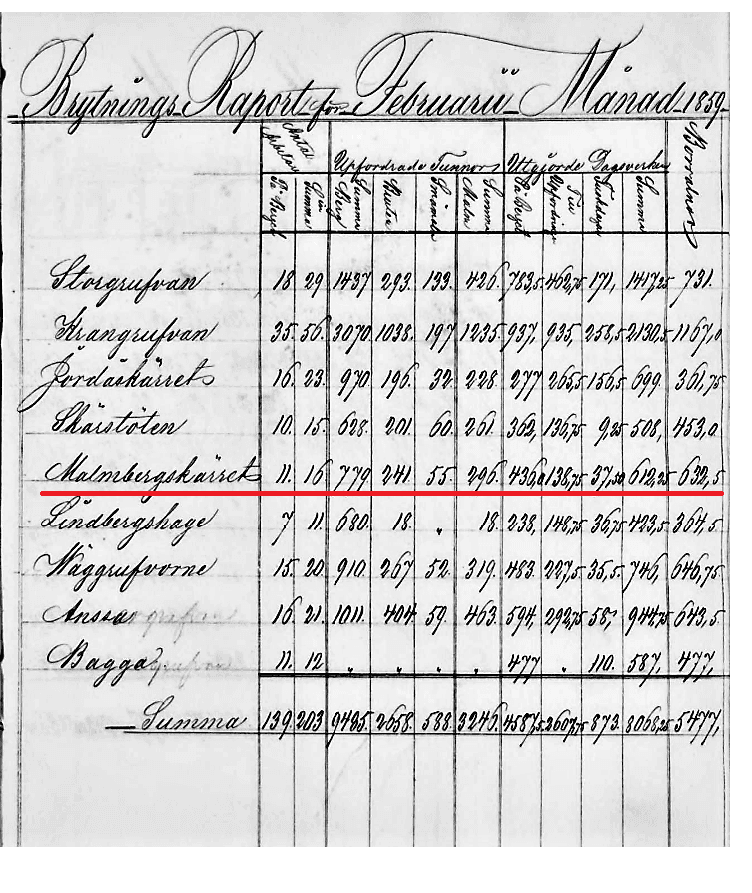 Brytnings Raport för Februarii Månad 1859
Antal Arbetare Upfordrade Tunnor Utgjorde Dagsverken Borrtum
På Berget Summa Summa Berg Summa Malm Summa På Berget Till Upfordring Summa
Storgrufvan 18 29 1437 293. 133. 426. 783,5 462,75 171, 1417,25 731.
Krangrufvan 35. 56. 3070. 1038. 197 1235. 937, 935, 258,5 2130,5 1167,0
Jordåskärret 16. 23. 970. 196. 32. 228. 277 265,5 156,5 699. 361,75
Skärstöten 10. 15. 628. 201. 60. 261. 362, 136,75 9,25 508, 453,0
Malmbergskärret 11. 16 779 241 55. 296. 436,0 138,75 37,50 612,25 632,5
Lindbergshage 7 11. 680. 18. „ 18. 238, 148,75 36,75 423,5 364,5.
Wäggrufvorne 15. 20. 910. 267 52. 319. 483. 227,5 35,5. 746, 646,75
Anssar grufvan 16 21. 1011. 404. 59. 463. 594, 292,75 58, 944,75 643,5.
Bagga grufvan 11. 12 „ „ „ „ 477 „ 110. 587, 477,
Summa 139. 203 9485. 2658. 588. 3246. 4587,5 2607,75 873. 8068,25 5477,